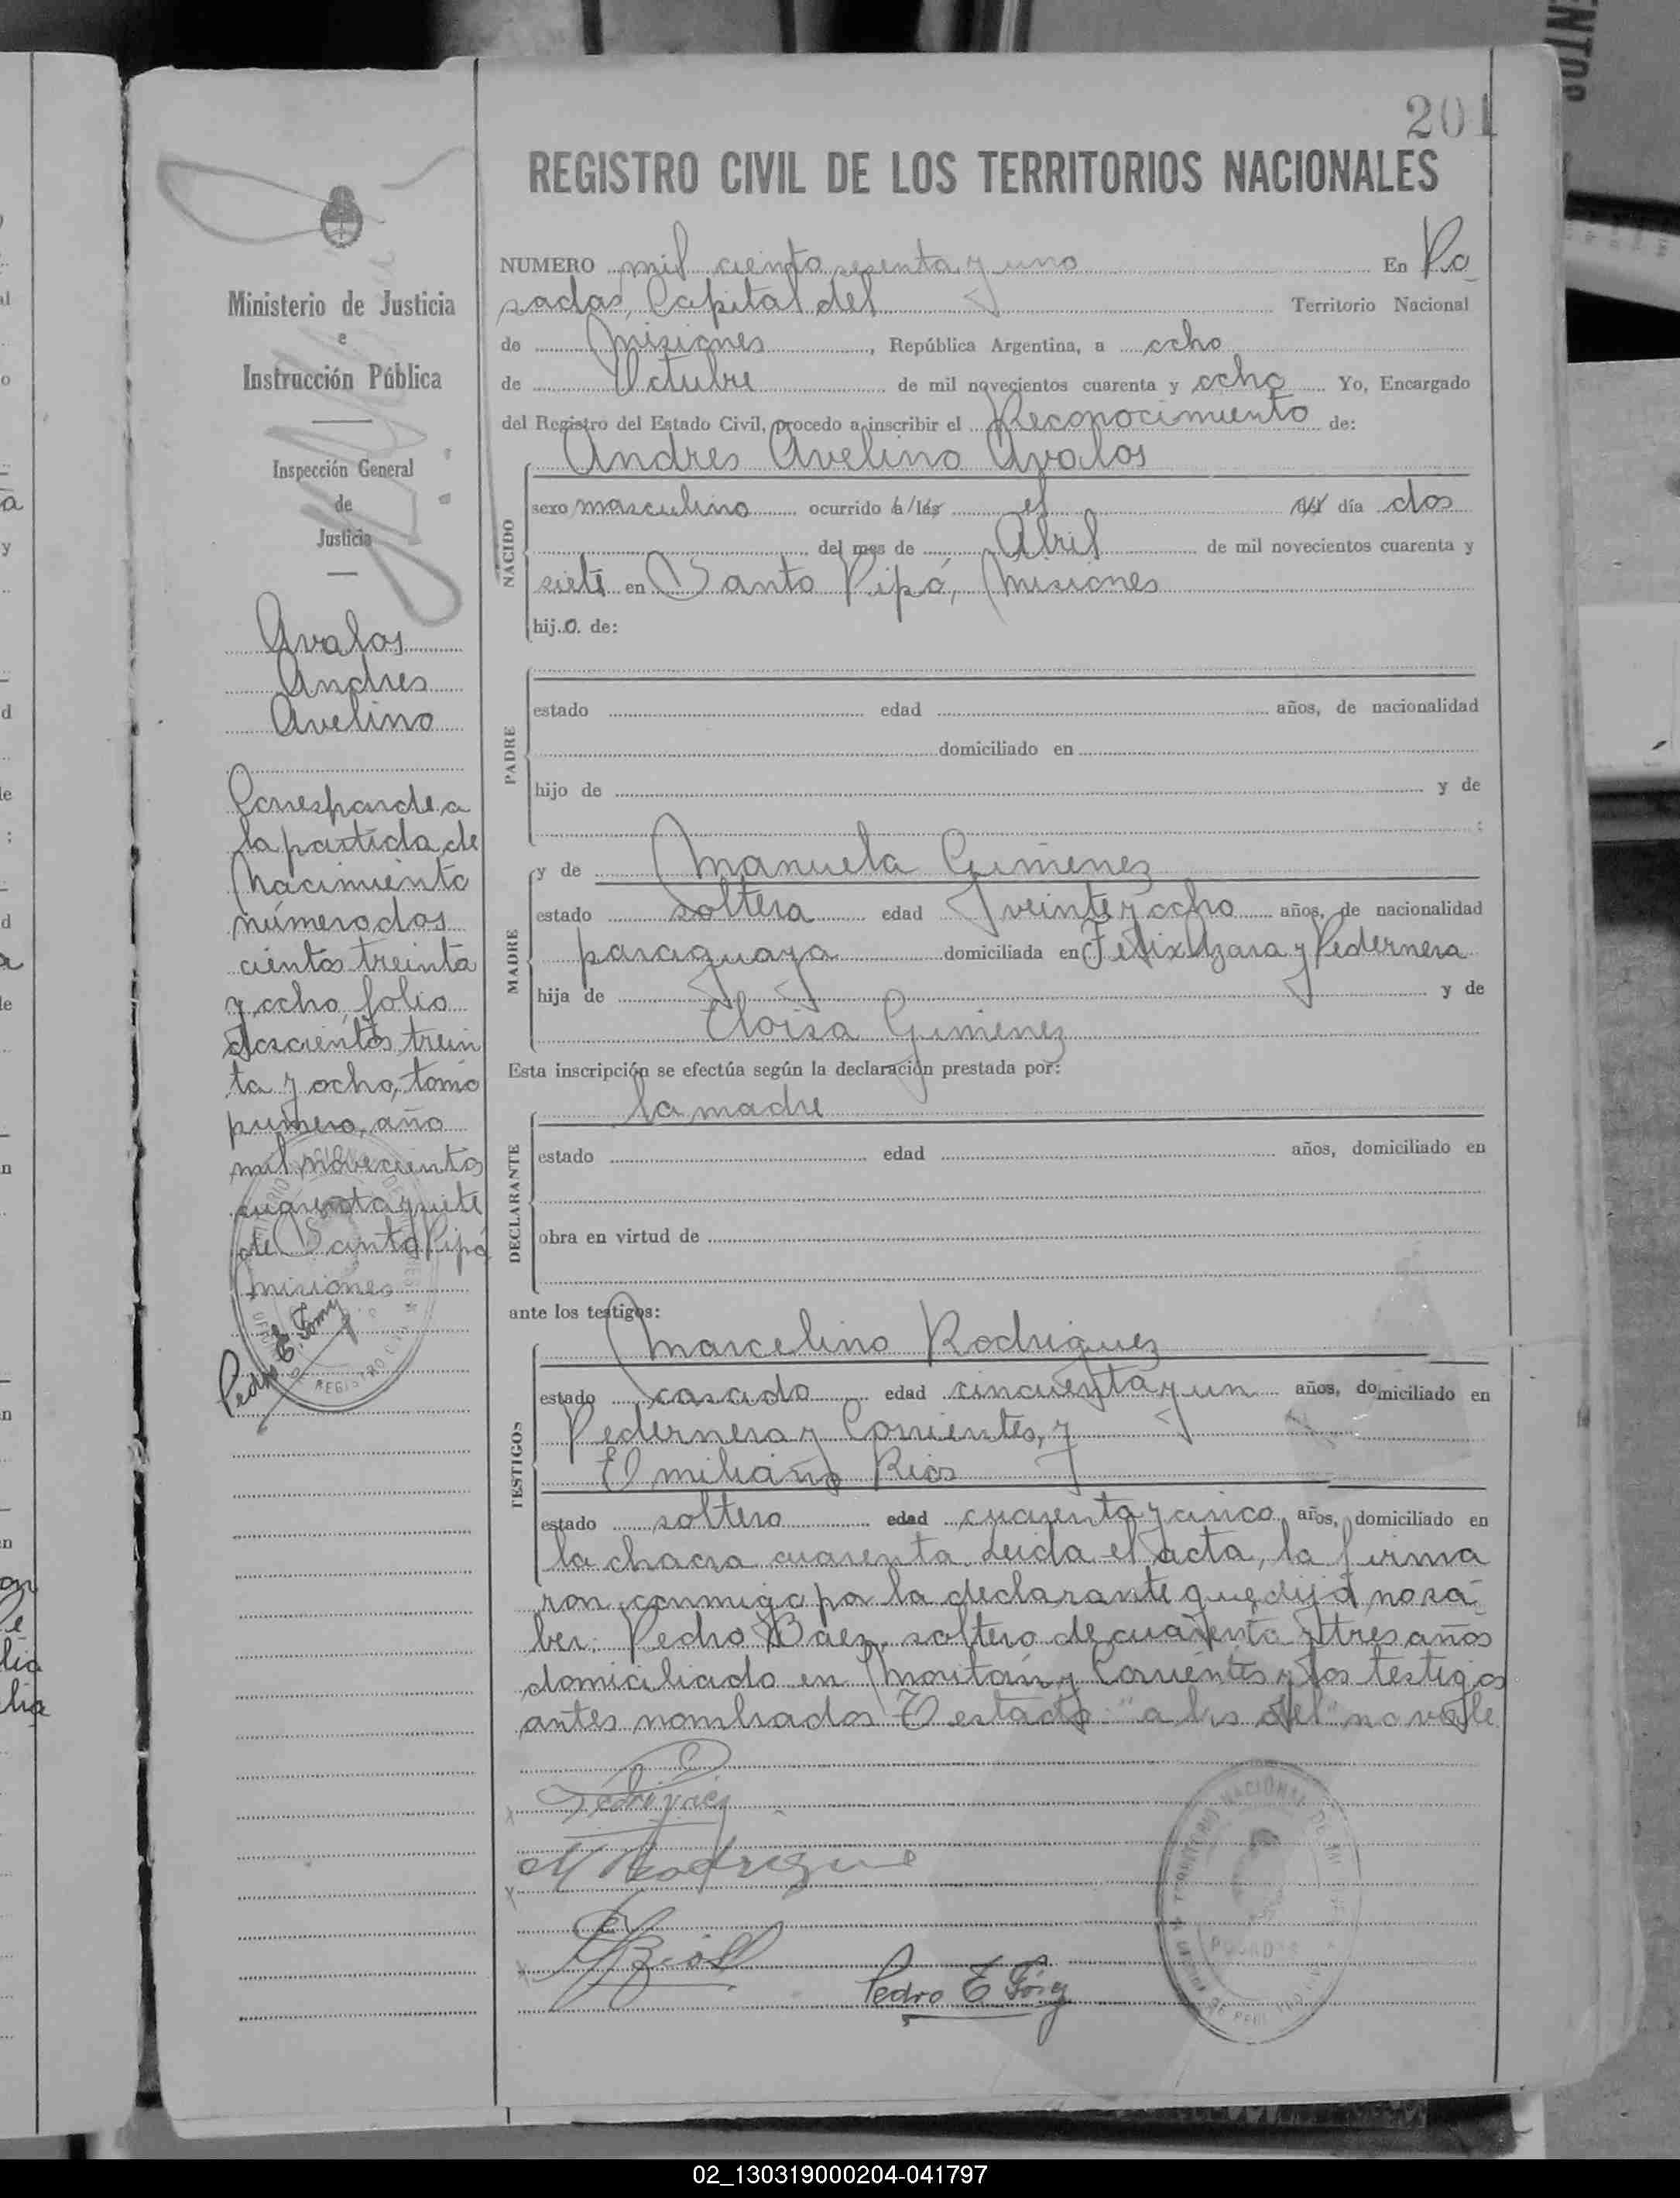 201
REGISTRO CIVIL DE LOS TERRITORIOS NACIONALES
Ministerio de Justicia
e
Instrucción Pública
Inspección General
de
Justicia
Avalos
Andres
Avelino
Corresponde a
la partida de
Nacimiento
número dos
cientos treinta
y ocho, folio
doscientos trein
ta y ocho, tomo
primero, año
mil novecientos
cuarenta y siete
de Santo Pipó
Misiones
NUMERO mil ciento sesenta y uno En Po
sadas, Capital del Territorio Nacional
de Misiones, República Argentina, a ocho
de Octubre de mil novecientos cuarenta y ocho Yo, Encargado
del Registro del Estado Civil, procedo a inscribir el Reconocimiento de:
Andres Avelino Avalos
NACIDO
sexo masculino ocurrido a/las el del día dos
del mes de Abril de mil novecientos cuarenta y
siete en Santo Pipó, Misiones
hijo de:
PADRE
estado edad años, de nacionalidad
domiciliado en
hijo de y de
:
MADRE
y de Manuela Gimenez
estado soltera edad veinte y ocho años, de nacionalidad
paraguaya domiciliada en Felix Azara y Pedernera
hija de y de
Eloisa Gimenez
Esta inscripción se efectúa según la declaración prestada por:
la madre
DECLARANTE
estado edad años, domiciliado en
obra en virtud de
ante los testigos:
TESTIGOS
Marcelino Rodriguez
estado casado edad cincuenta y un años, domiciliado en
Pedernera y Corrientes, y
Emiliano Rios
estado soltero edad cuarenta y cinco años, domiciliado en
la chacra cuarenta. Leida el acta, la firma
ron conmigo por la declarante que dijo no sa-
ber: Pedro Baez, soltero de cuarenta y tres años
domiciliado en y Corrientes y los testigos
antes nombrados Testado: "a las del" no vale
M Rodrigue
Pedro E
REGISTRO
02_130319000204-041797